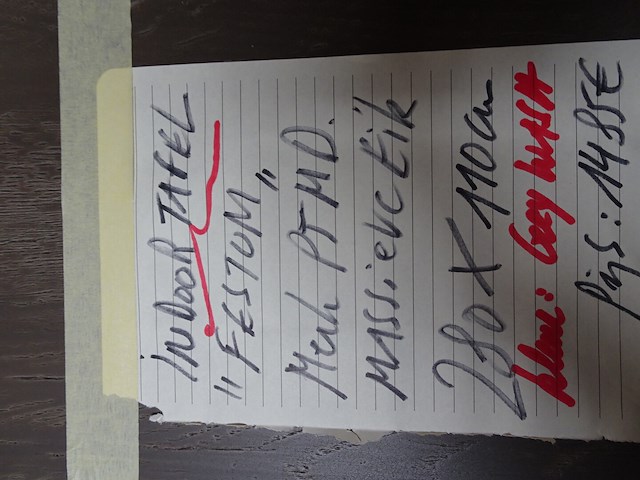 INDOOR TAFEL
"FESTOM"
Merk PTMD.
MASSieVe Eik
280 X 110 cm
kleur: Grey WASH
Pijs: 1485€